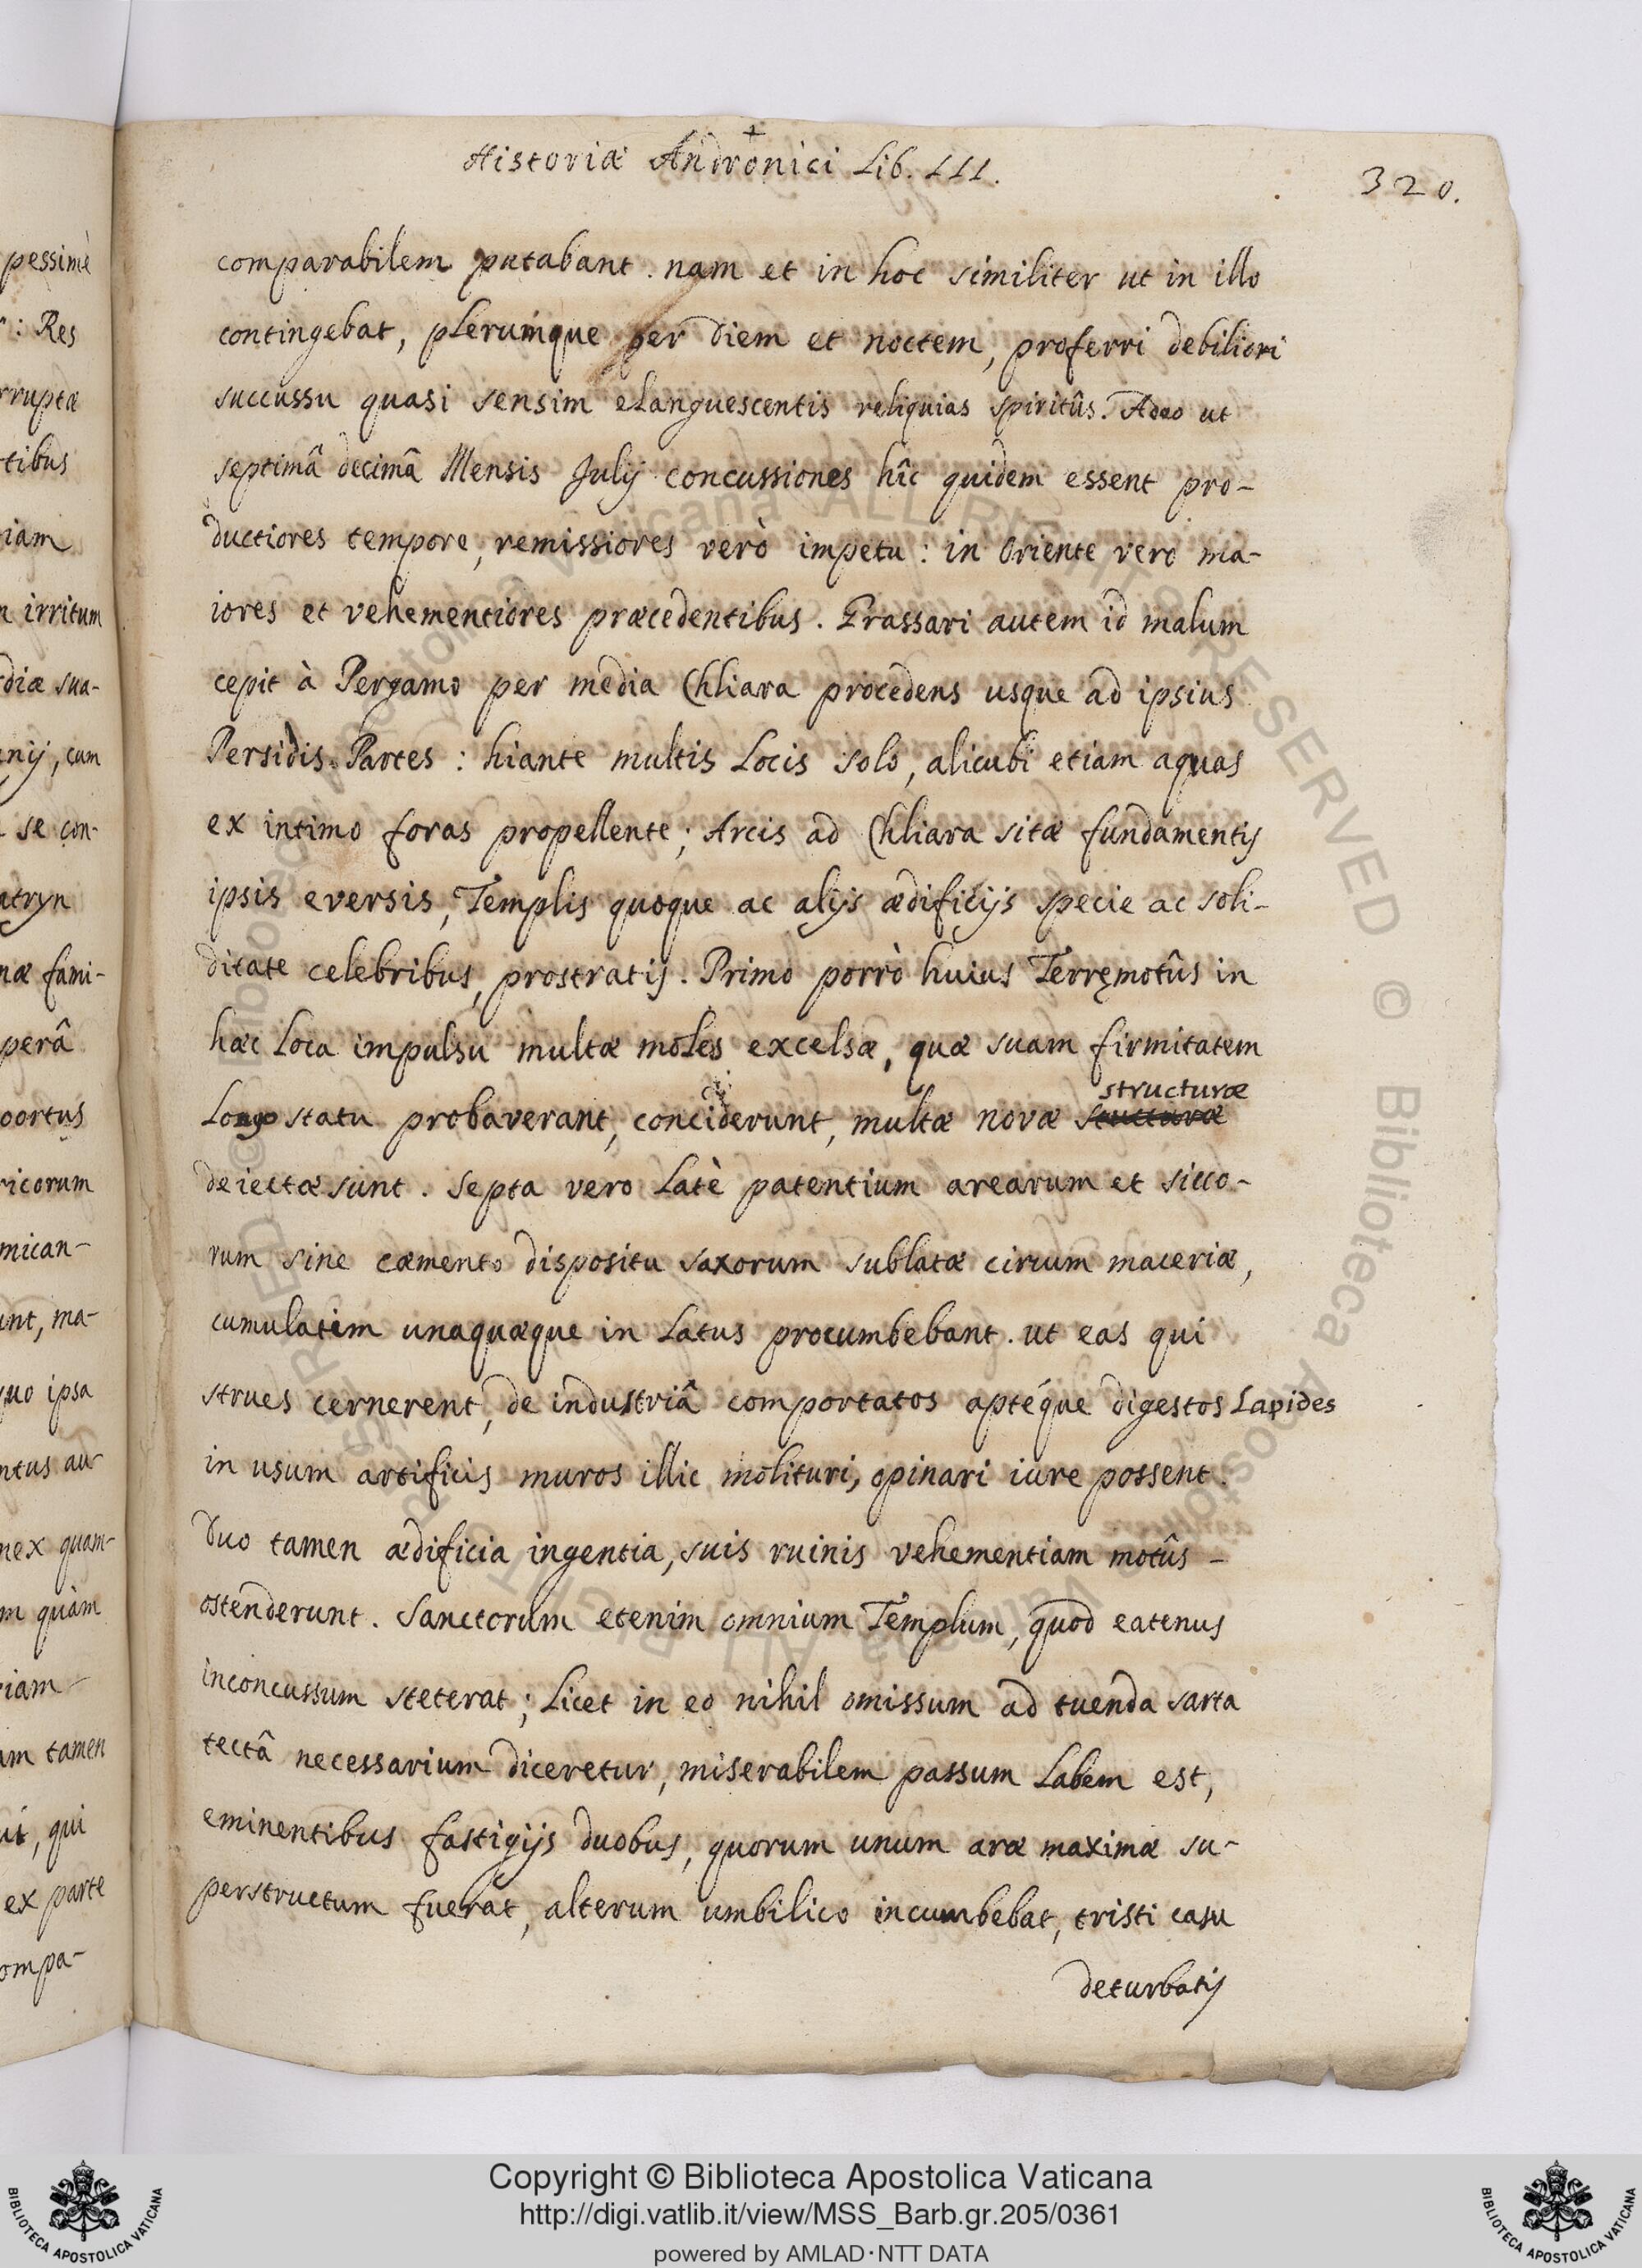 Historiæ Andronici Lib. III.
320.
comparabilem putabant. nam et in hoc similiter ut in illo
contingebat, plerumque per diem et noctem, proferri debiliori
succussu quasi sensim elanguescentis reliquias spiritûs. Adeo ut
septimâ decimâ Mensis Julij concussiones hîc quidem essent pro-
ductiores tempore, remissiores verò impetu: in Oriente vero ma-
iores et vehementiores præcedentibus. Grassari autem id malum
cepit à Pergamo per media Chliara procedens usque ad ipsius
Persidis Partes: hiante multis Locis solo, alicubi etiam aquas
ex intimo foras propellente; Arcis ad Chliara sitæ fundamentis
ipsis eversis, Templis quoque ac alijs ædificijs specie ac soli-
ditate celebribus, prostratis. Primo porrò huius Terręmotûs in
hæc Loca impulsu multæ moles excelsæ, quæ suam firmitatem
structuræ
Longo statu probaverant, conciderunt, multæ novæ
deiectæ sunt. Septa vero Latè patentium arearum et sicco-
rum sine cæmento dispositu saxorum sublatæ circum maceriæ,
cumulatim unaquæque in Latus procumbebant. ut eas qui
strues cernerent, de industriâ comportatos aptéque digestos Lapides
in usum artificis muros illic molituri, opinari iure possent.
Duo tamen ædificia ingentia, suis ruinis vehementiam motûs -
ostenderunt. Sanctorum etenim omnium Templum, quod eatenus
inconcussum steterat; Licet in eo nihil omissum ad tuenda sarta
tectâ necessarium diceretur, miserabilem passum Labem est,
eminentibus fastigijs duobus, quorum unum aræ maximæ su-
perstructum fuerat, alterum umbilico incumbebat, tristi casu
deturbatis
pessimè
: Res
rruptæ
tibus
iam
irritum
diæ sua-
nij, cum
se con-
atryn
næ fami-
perâ
portus
ricorum
mican-
unt, ma-
quo ipsa
ntus au-
nex quam-
m quàm
riam
am tamen
ui, qui
ex parte
ompa-
Copyright © Biblioteca Apostolica Vaticana
http://digi.vatlib.it/view/MSS_Barb.gr.205/0361
powered by AMLAD·NTT DATA
BIBLIOTECA APOSTOLICA VATICANA
BIBLIOTECA APOSTOLICA VATICANA